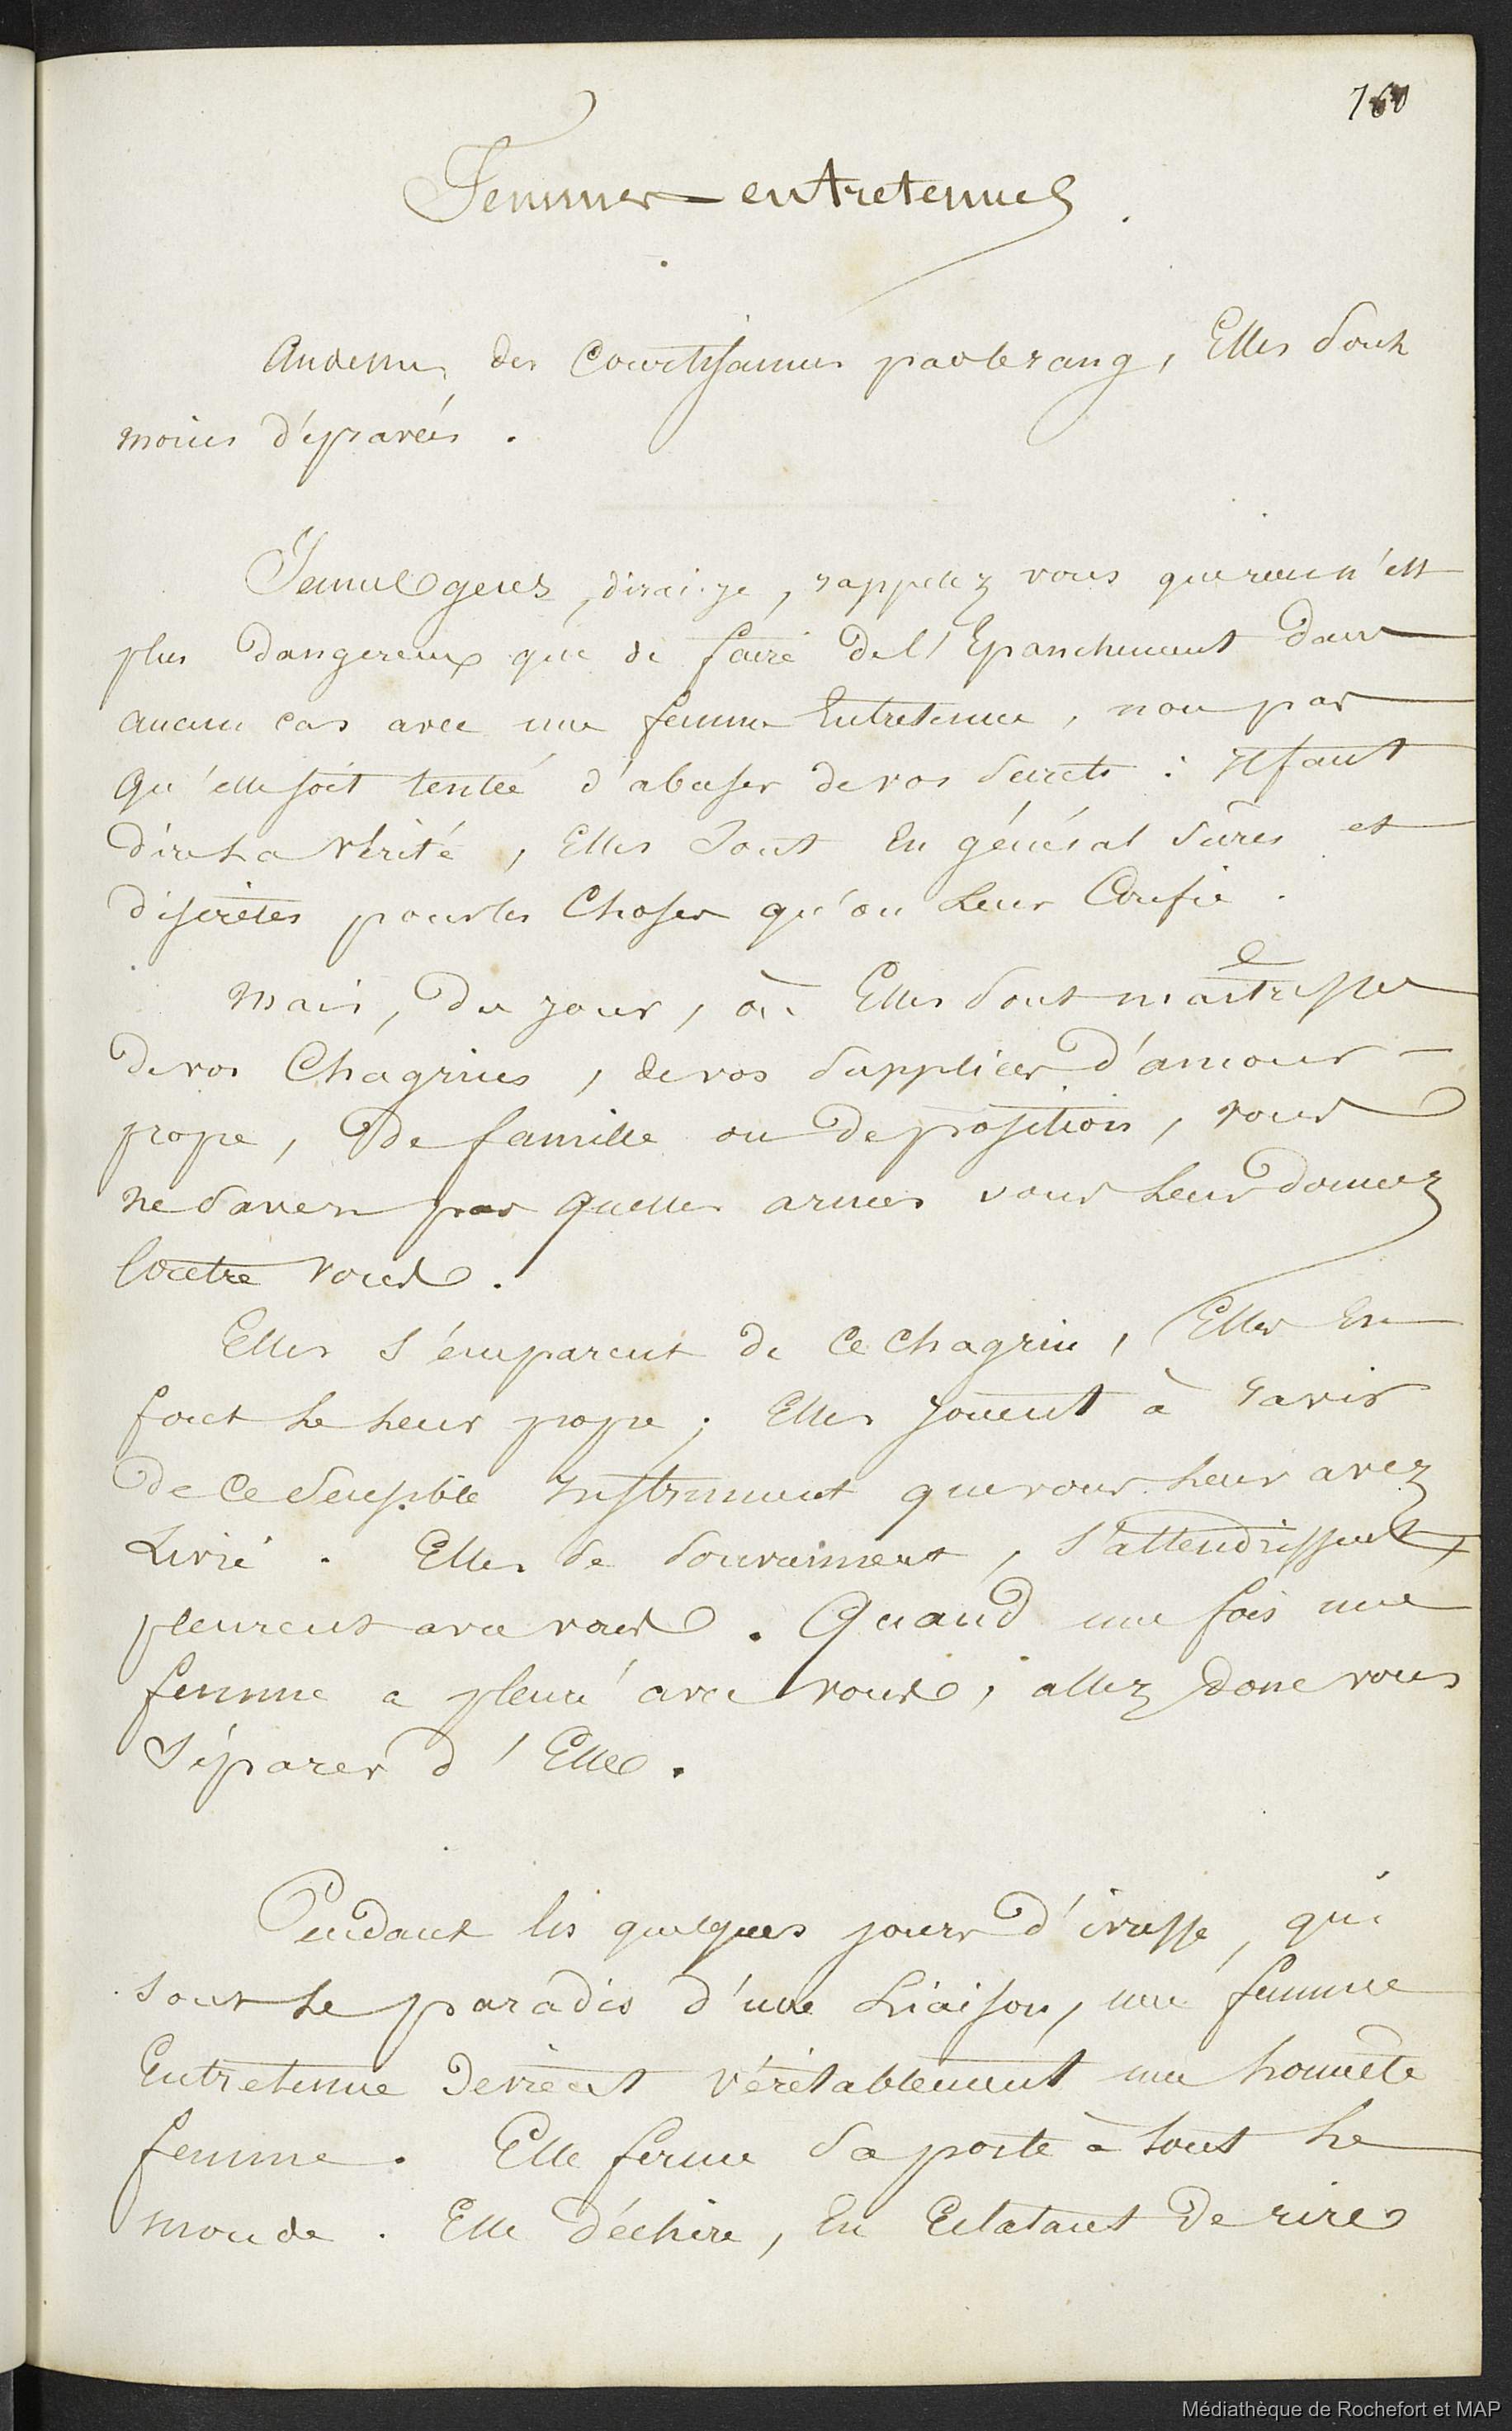 160
Femmes entretenues.
Audessus des Courtisannes par le rang, Elles sont
moins dépravées.
Jeunes gens, dirai-je, rappelez vous que rien n'est
plus dangereux que de faire de l'Epanchement dans
aucun cas avec une femme Entretenue, non pas
qu'elle soit tentée d'abuser de vos secrets : Il faut
dire la vérité, Elles sont En général sûres et
discrètes pour les Choses qu'on Leur Confie.
Mais, du jour, où Elles sont maitresses
de vos Chagrins, de vos supplices d'amour-
propre, de famille ou de position, vous
ne savez pas quelles armes vous leur donnez
Contre vous.
Elles s'emparent de ce chagrin, Elles En
font le leur propre ; Elles jouent à ravir
de ce sensible Instrument que vous leur avez
Livré. Elles se souviennent, s'attendrissent,
pleurent avec vous. Quand une fois une
femme a pleuré avec vous, allez donc vous
séparer d'Elle.
Pendant les quelques jours d'ivresse, qui
sont le paradis d'une Liaison, une femme
Entretenue devient véritablement une honnête
femme. Elle ferme sa porte à tout le
monde. Elle déchire, En Eclatant de rire
Médiathèque de Rochefort et MAP